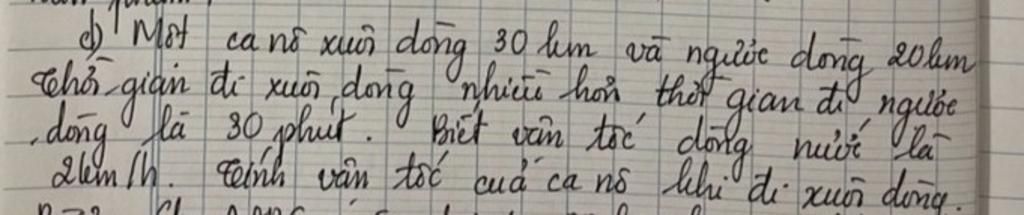 d) Một ca nô xuôi dòng 30 km và ngược dòng 20km
Thời gian đi xuôi dòng nhiều hơn thời gian đi ngược
dòng là 30 phút. Biết vận tốc dòng nước là
2km/h. Tính vận tốc của ca nô khi đi xuôi dòng.